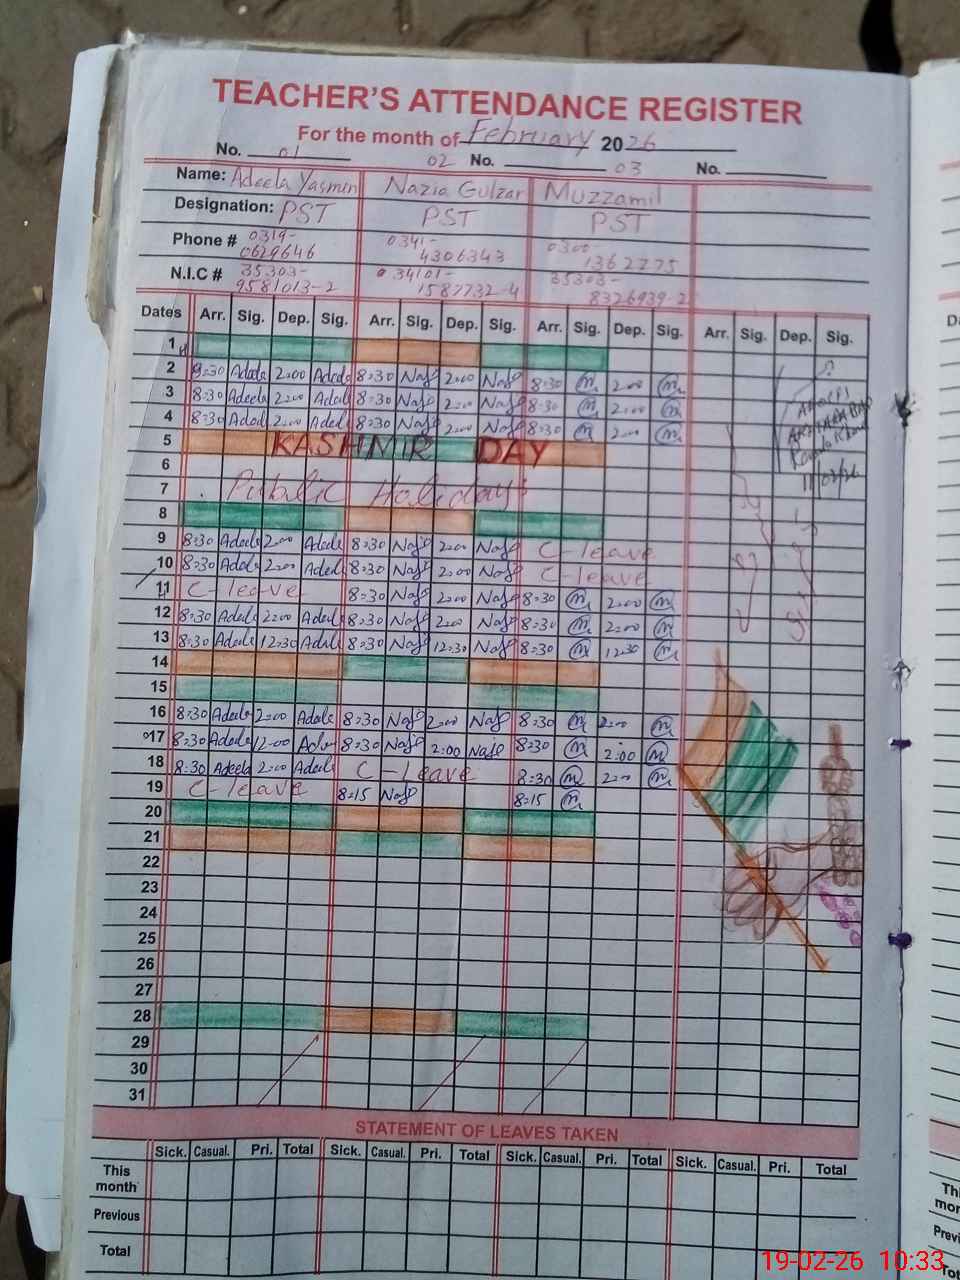 TEACHER'S ATTENDANCE REGISTER
For the month of February 2026
No. 01 02 No. 03 No.
Name: Adeela Yasmin Nazia Gulzar Muzzamil
Designation: PST PST PST
Phone # 0319- 0341- 0300-
0629646 4306343 1362775
N.I.C # 35303- 34101- 35303-
9581013-2 1587732-4 8326939-2
Dates Arr. Sig. Dep. Sig. Arr. Sig. Dep. Sig. Arr. Sig. Dep. Sig. Arr. Sig. Dep. Sig.
1
2 8:30 Adeela 2:00 Adeela 8:30 Naz 2:00 Naz 8:30 m 2:00 m
3 8:30 Adeela 2:00 Adeela 8:30 Naz 2:00 Naz 8:30 m 2:00 m
4 8:30 Adeela 2:00 Adeela 8:30 Naz 2:00 Naz 8:30 m 2:00 m
5 KASHMIR DAY
6
7 Public Holidays
8
9 8:30 Adeela 2:00 Adeela 8:30 Naz 2:00 Naz C-leave
10 8:30 Adeela 2:00 Adeela 8:30 Naz 2:00 Naz C-leave
11 C-leave 8:30 Naz 2:00 Naz 8:30 m 2:00 m
12 8:30 Adeela 2:00 Adeela 8:30 Naz 2:00 Naz 8:30 m 2:00 m
13 8:30 Adeela 12:30 Adeela 8:30 Naz 12:30 Naz 8:30 m 12:30 m
14
15
16 8:30 Adeela 2:00 Adeela 8:30 Naz 2:00 Naz 8:30 m 2:00 m
17 8:30 Adeela 12:00 Adeela 8:30 Naz 2:00 Naz 8:30 m 2:00 m
18 8:30 Adeela 2:00 Adeela C-Leave 8:30 m 2:00 m
19 C-leave 8:15 Naz 8:15 m
20
21
22
23
24
25
26
27
28
29
30
31
11/02/26
STATEMENT OF LEAVES TAKEN
Sick. Casual. Pri. Total Sick. Casual. Pri. Total Sick. Casual. Pri. Total Sick. Casual. Pri. Total
This
month
Previous
Total
19-02-26 10:33